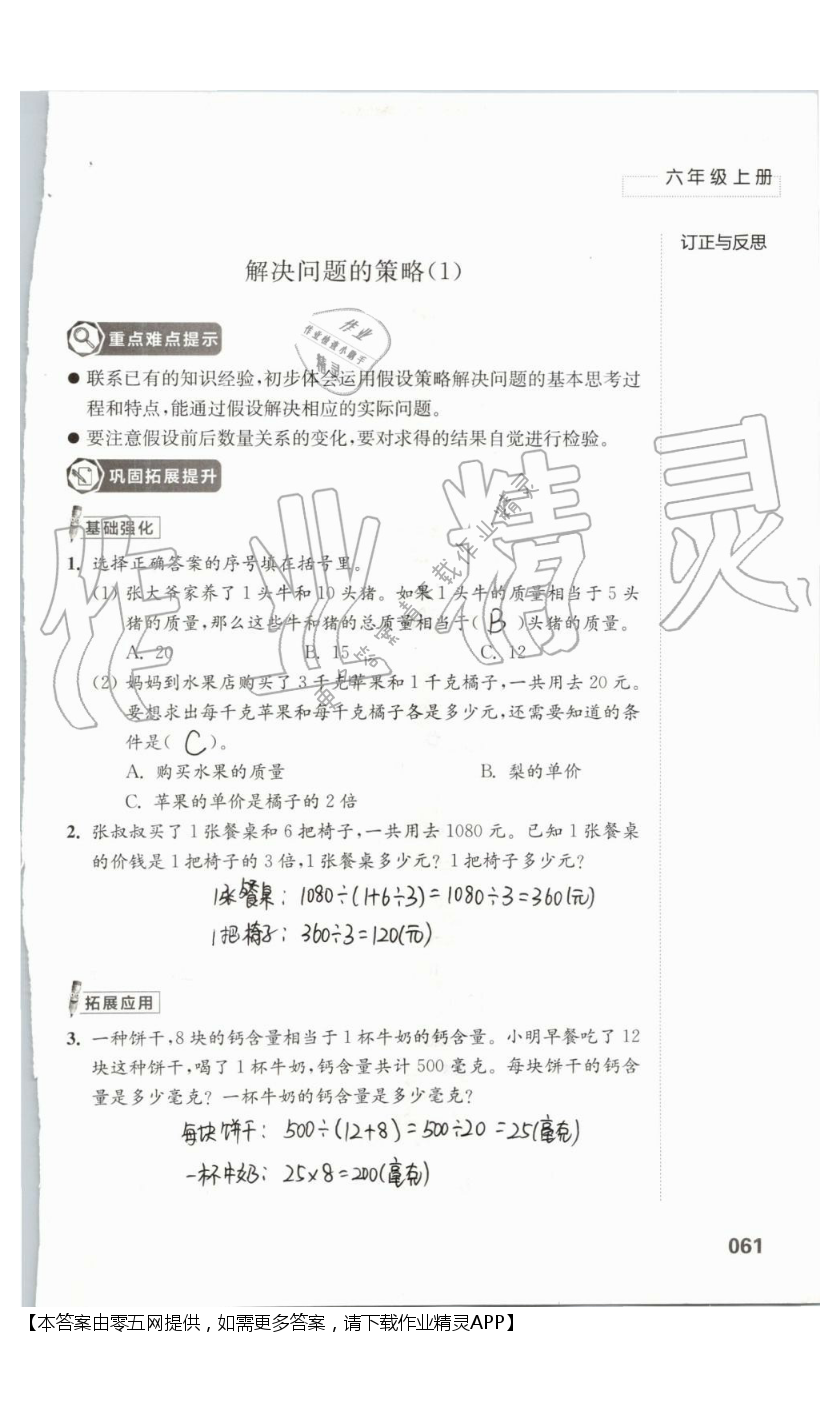 六年级上册
订正与反思
解决问题的策略(1)
重点难点提示
● 联系已有的知识经验,初步体会运用假设策略解决问题的基本思考过
程和特点,能通过假设解决相应的实际问题。
● 要注意假设前后数量关系的变化,要对求得的结果自觉进行检验。
巩固拓展提升
基础强化
1. 选择正确答案的序号填在括号里。
(1) 张大爷家养了1头牛和10头猪。如果1头牛的质量相当于5头
猪的质量,那么这些牛和猪的总质量相当于( B )头猪的质量。
A. 20 B. 15 C. 12
(2) 妈妈到水果店购买了3千克苹果和1千克橘子,一共用去20元。
要想求出每千克苹果和每千克橘子各是多少元,还需要知道的条
件是( C )。
A. 购买水果的质量 B. 梨的单价
C. 苹果的单价是橘子的2倍
2. 张叔叔买了1张餐桌和6把椅子,一共用去1080元。已知1张餐桌
的价钱是1把椅子的3倍,1张餐桌多少元? 1把椅子多少元?
1张餐桌: 1080÷(1+6÷3)=1080÷3=360(元)
1把椅子: 360÷3=120(元)
拓展应用
3. 一种饼干,8块的钙含量相当于1杯牛奶的钙含量。小明早餐吃了12
块这种饼干,喝了1杯牛奶,钙含量共计500毫克。每块饼干的钙含
量是多少毫克? 一杯牛奶的钙含量是多少毫克?
每块饼干: 500÷(12+8)=500÷20=25(毫克)
一杯牛奶: 25×8=200(毫克)
061
【本答案由零五网提供,如需更多答案,请下载作业精灵APP】
作业精灵
作业
作业检查小助手
精灵